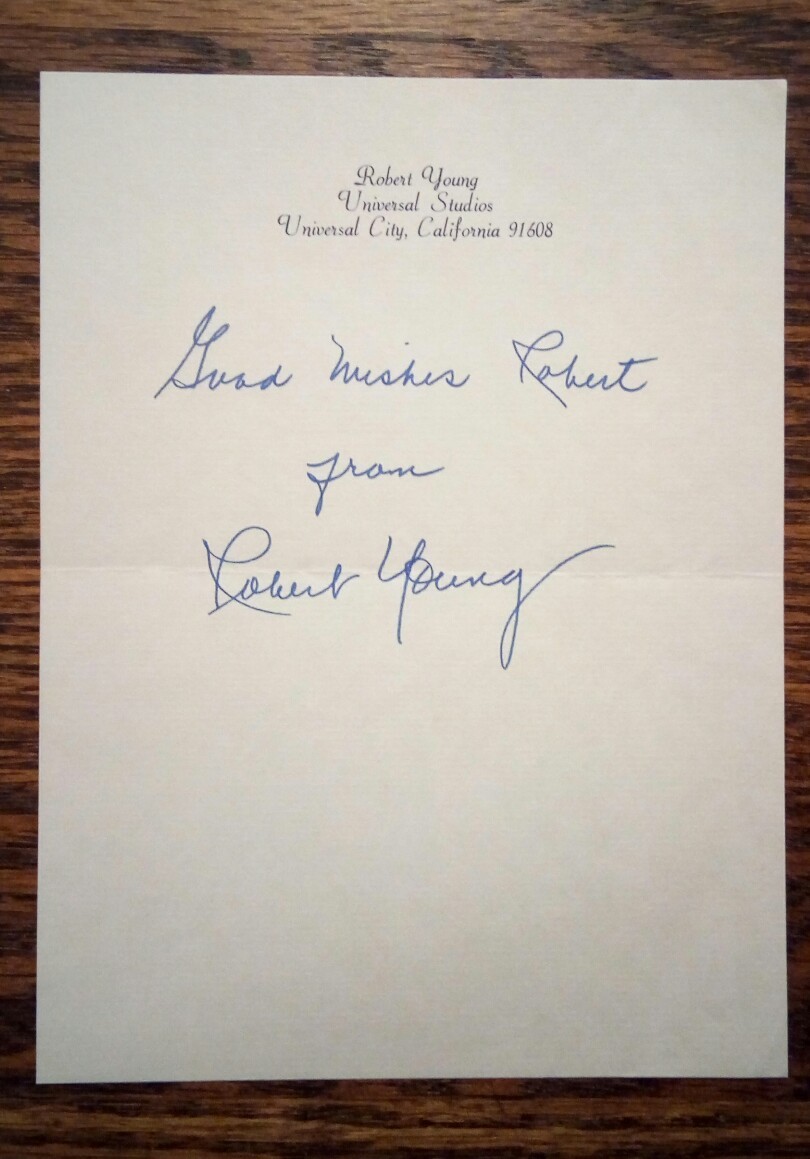 Robert Young
Universal Studios
Universal City, California 91608
Good Wishes Robert
from
Robert Young